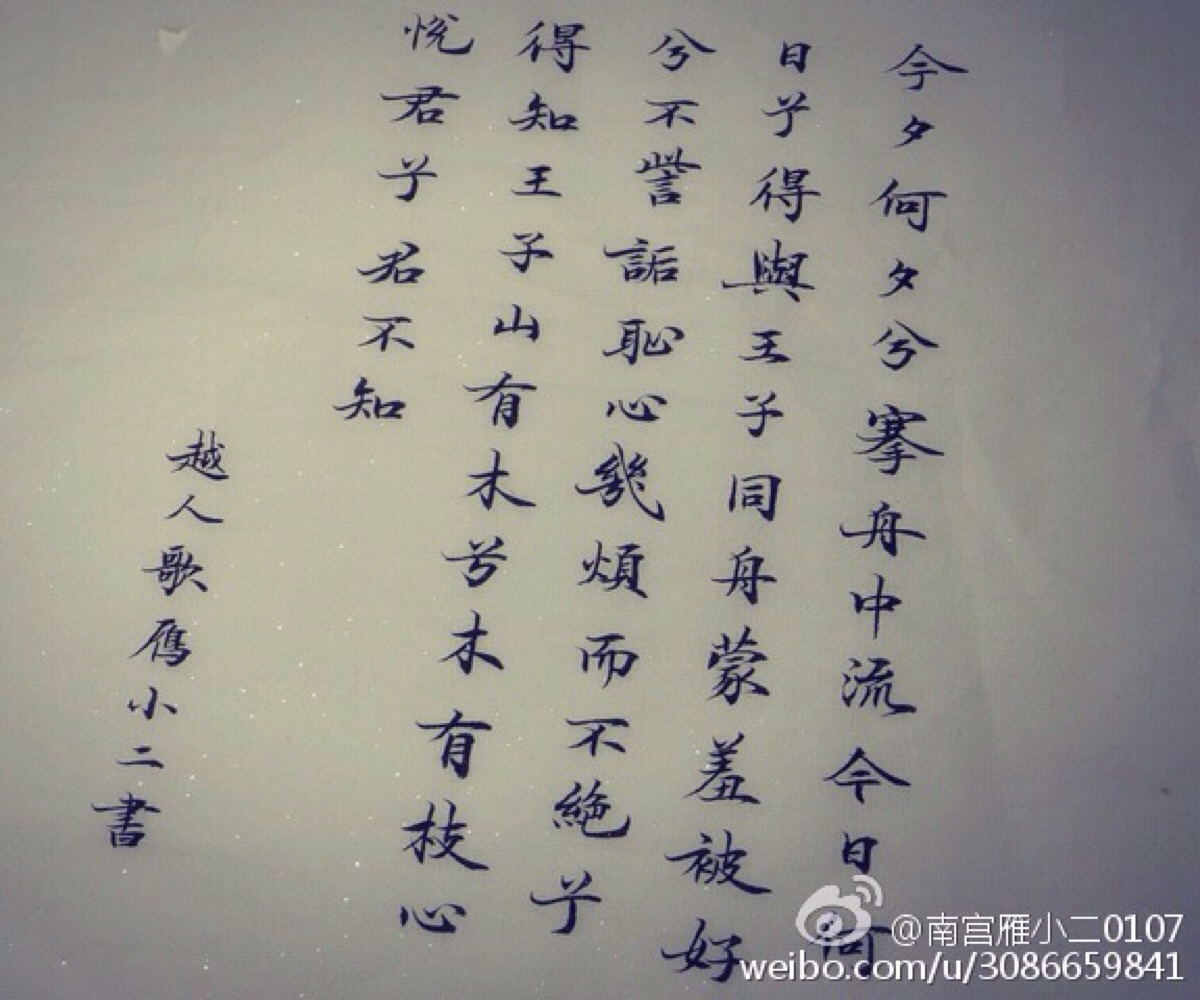 今夕何夕兮搴舟中流今日何
日兮得與王子同舟蒙羞被好
兮不訾詬恥心幾煩而不絶兮
得知王子山有木兮木有枝心
悅君兮君不知
越人歌鴈小二書
@南宫雁小二0107
weibo.com/u/3086659841